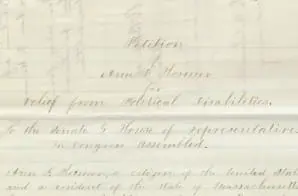 Petition
of
Ann R.
for
relief from Political Disabilities.
To the Senate & House of Representatives
in Congress assembled.
Ann R. a citizen of the United Stat
and a resident of the State of Massachusetts